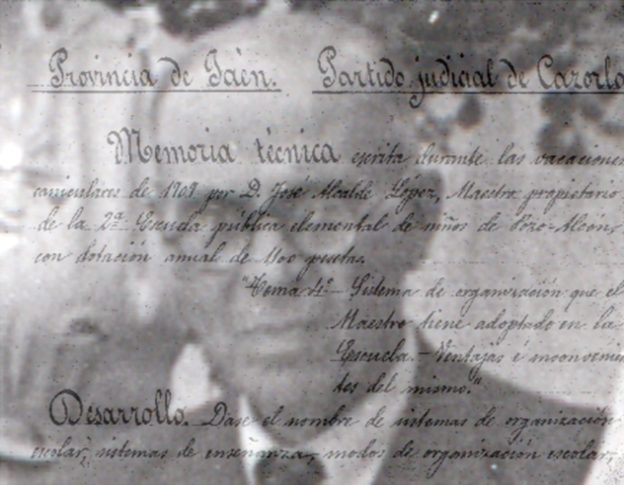 Provincia de Jaén. Partido judicial de Cazorla
Memoria técnica escrita durante las vacaciones
caniculares de 1909 por D. José Alcalde López, Maestro propietario
de la 2ª Escuela pública elemental de niños de Pozo-Alcón,
con dotación anual de 1100 pesetas.
"Tema 4º - Sistema de organización que el
Maestro tiene adoptado en la
Escuela. - Ventajas é inconvenien
tes del mismo."
Desarrollo. Dase el nombre de sistemas de organización
escolar, sistemas de enseñanza, modos de organización escolar,